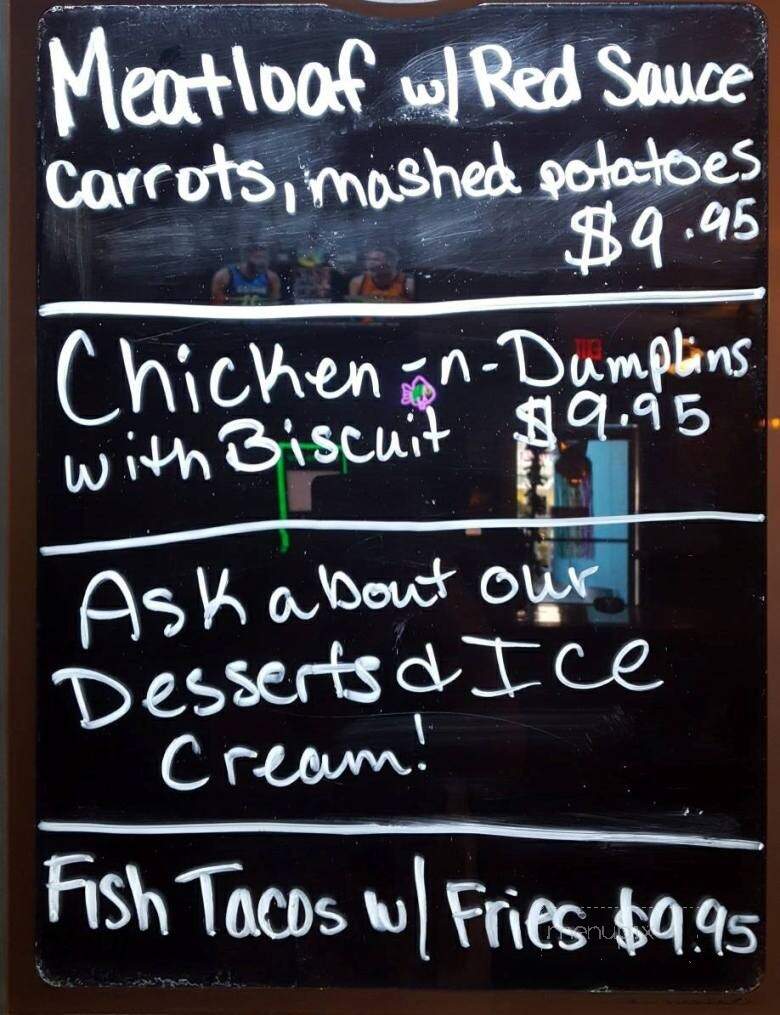 Meatloaf w/ Red Sauce
Carrots, mashed potatoes
$9.95
Chicken-n-Dumplins
with Biscuit $9.95
Ask about our
Desserts & Ice
Cream!
Fish Tacos w/ Fries $9.95
menupix